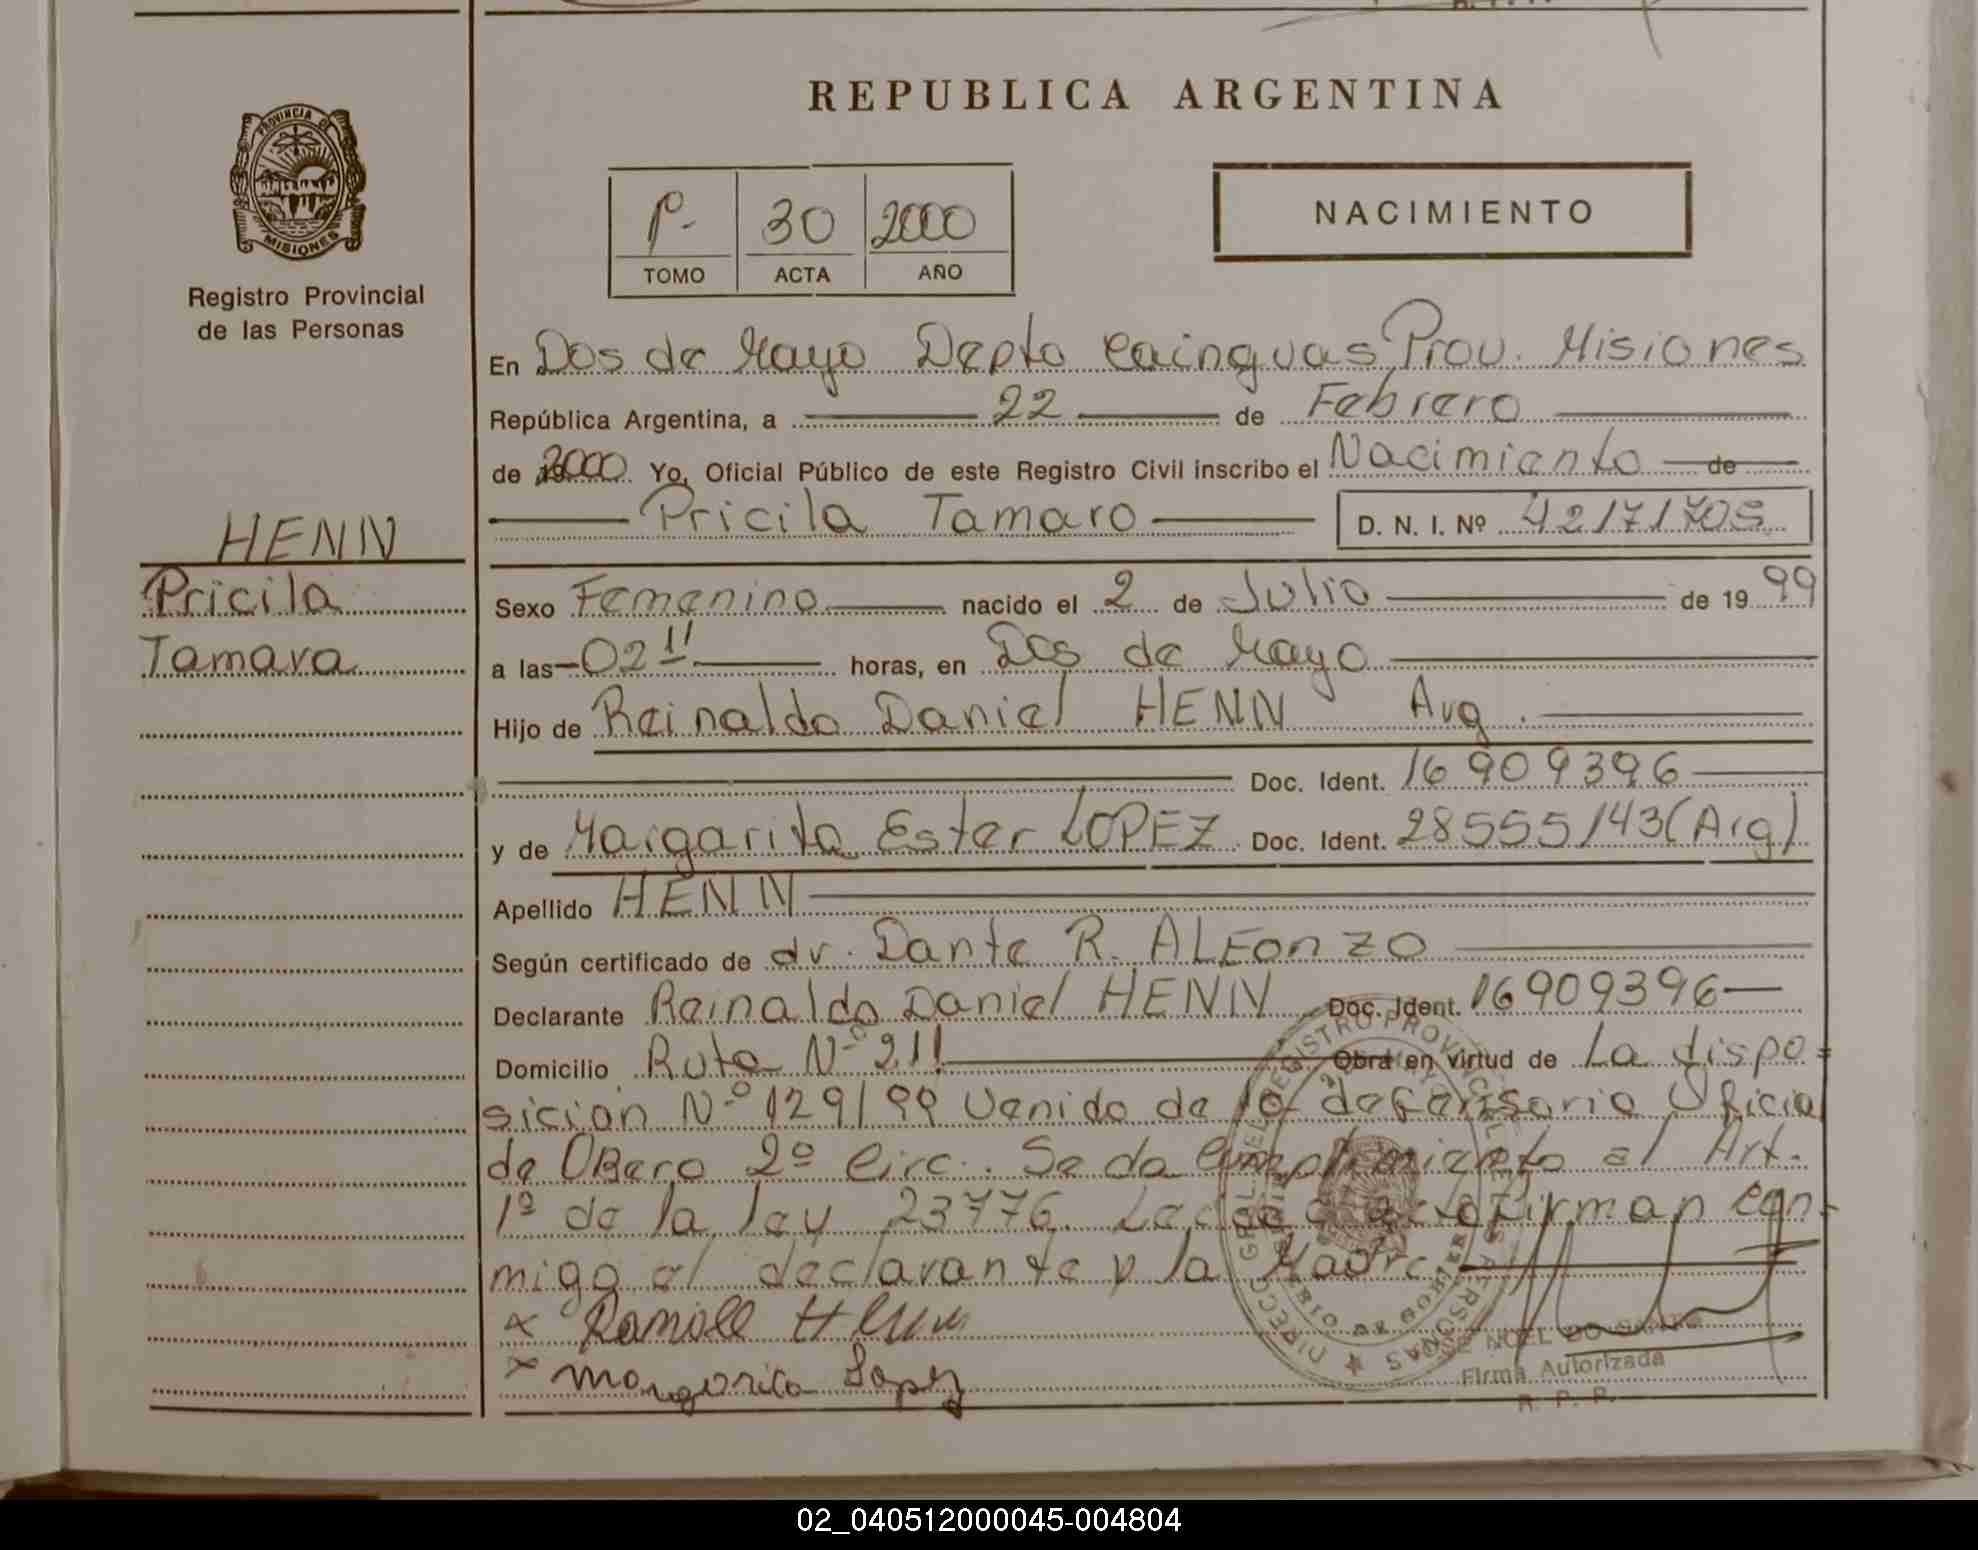 REPUBLICA ARGENTINA
PROVINCIA DE
MISIONES
Registro Provincial
de las Personas
P- 30 2000
TOMO ACTA AÑO
NACIMIENTO
En Dos de Mayo Depto Cainguas Prov. Misiones
República Argentina, a 22 de Febrero
de 2000 Yo, Oficial Público de este Registro Civil inscribo el Nacimiento de
Pricila Tamara D. N. I. Nº 42171705
HENN
Pricila
Tamara
Sexo Femenino nacido el 2 de Julio de 1999
a las 02 horas, en Dos de Mayo
Hijo de Reinaldo Daniel HENN Arg.
Doc. Ident. 16909396
y de Margarita Ester LOPEZ Doc. Ident. 28555143 (Arg)
Apellido HENN
Según certificado de dr. Dante R. ALFonzo
Declarante Reinaldo Daniel HENN Doc. Ident. 16909396
Domicilio Ruta Nº 211 Obra en virtud de La dispo=
sición Nº 129/99 Venido de la defensoria Oficial
de OBera 2º Circ. Se da Cumplimiento al Art.
1º de la ley 23776. Leída el acta firman con-
migo el declarante y la Madre
x Daniel Henn
x Margarita Lopez
Firma Autorizada
R. P. P.
02_040512000045-004804